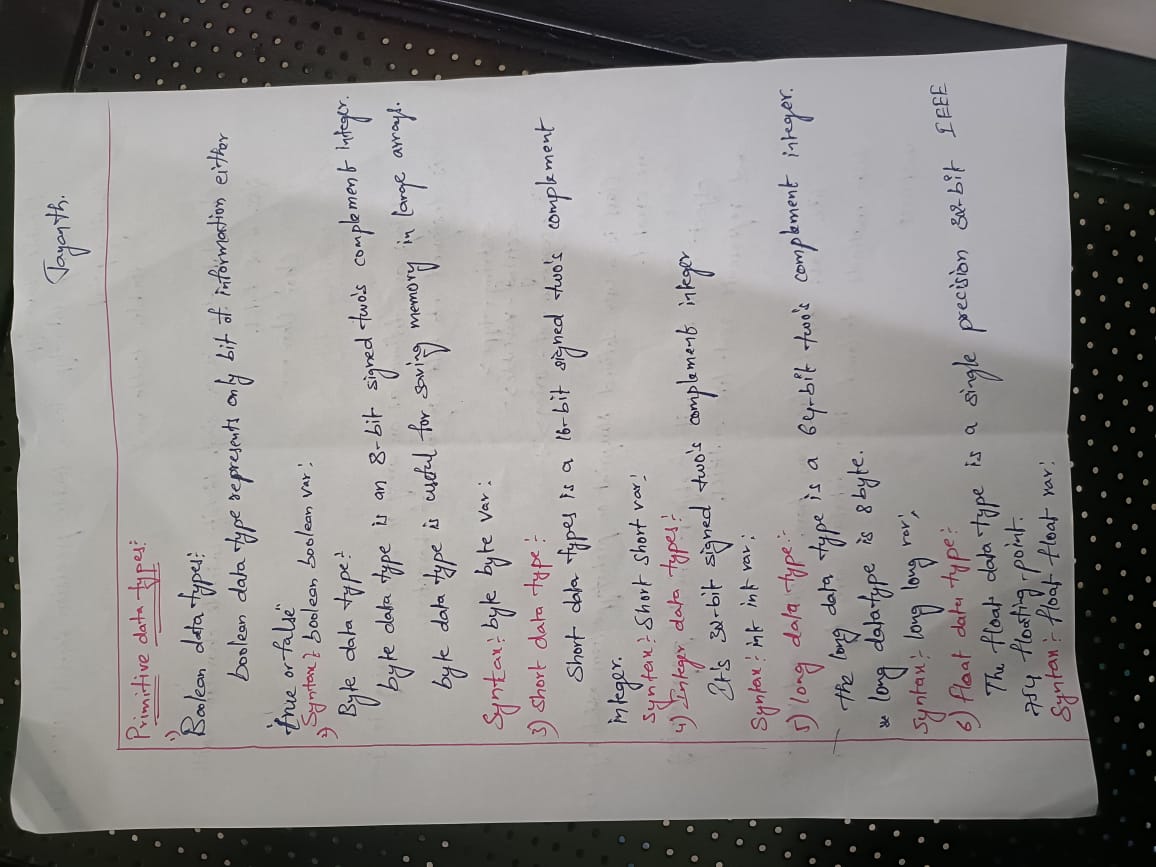 Jayanth.
Primitive data types:
1)
Boolean data types:
boolean data type represents only bit of information either
true or false
Syntax: boolean boolean var;
2)
Byte data type:
byte data type is an 8-bit signed two's complement integer.
byte data type is useful for saving memory in large arrays.
Syntax: byte byte var;
3) short data type:
Short data types is a 16-bit signed two's complement
integer.
Syntax: Short short var;
4) Integer data types:
It is 32-bit signed two's complement integer
Syntax: int int var;
5) long data type:
The long data type is a 64-bit two's complement integer.
* long datatype is 8 byte.
Syntax: long long var;
6) float data type:
The float data type is a single precision 32-bit IEEE
754 floating point.
Syntax: float float var;